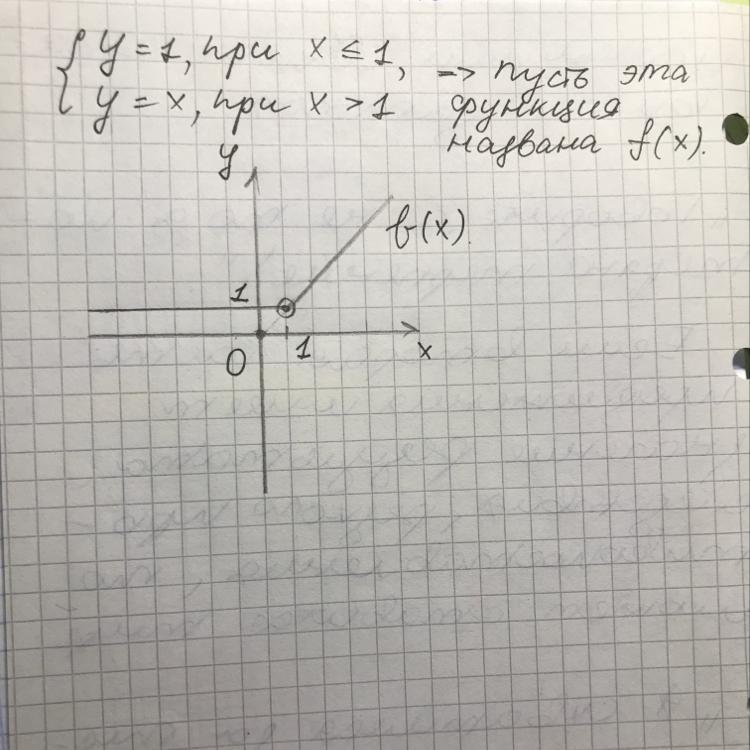 { y = 1, при x ≤ 1,
y = x, при x > 1
=> пусть эта
функция
названа f(x).
y
f(x).
1
0
1
x